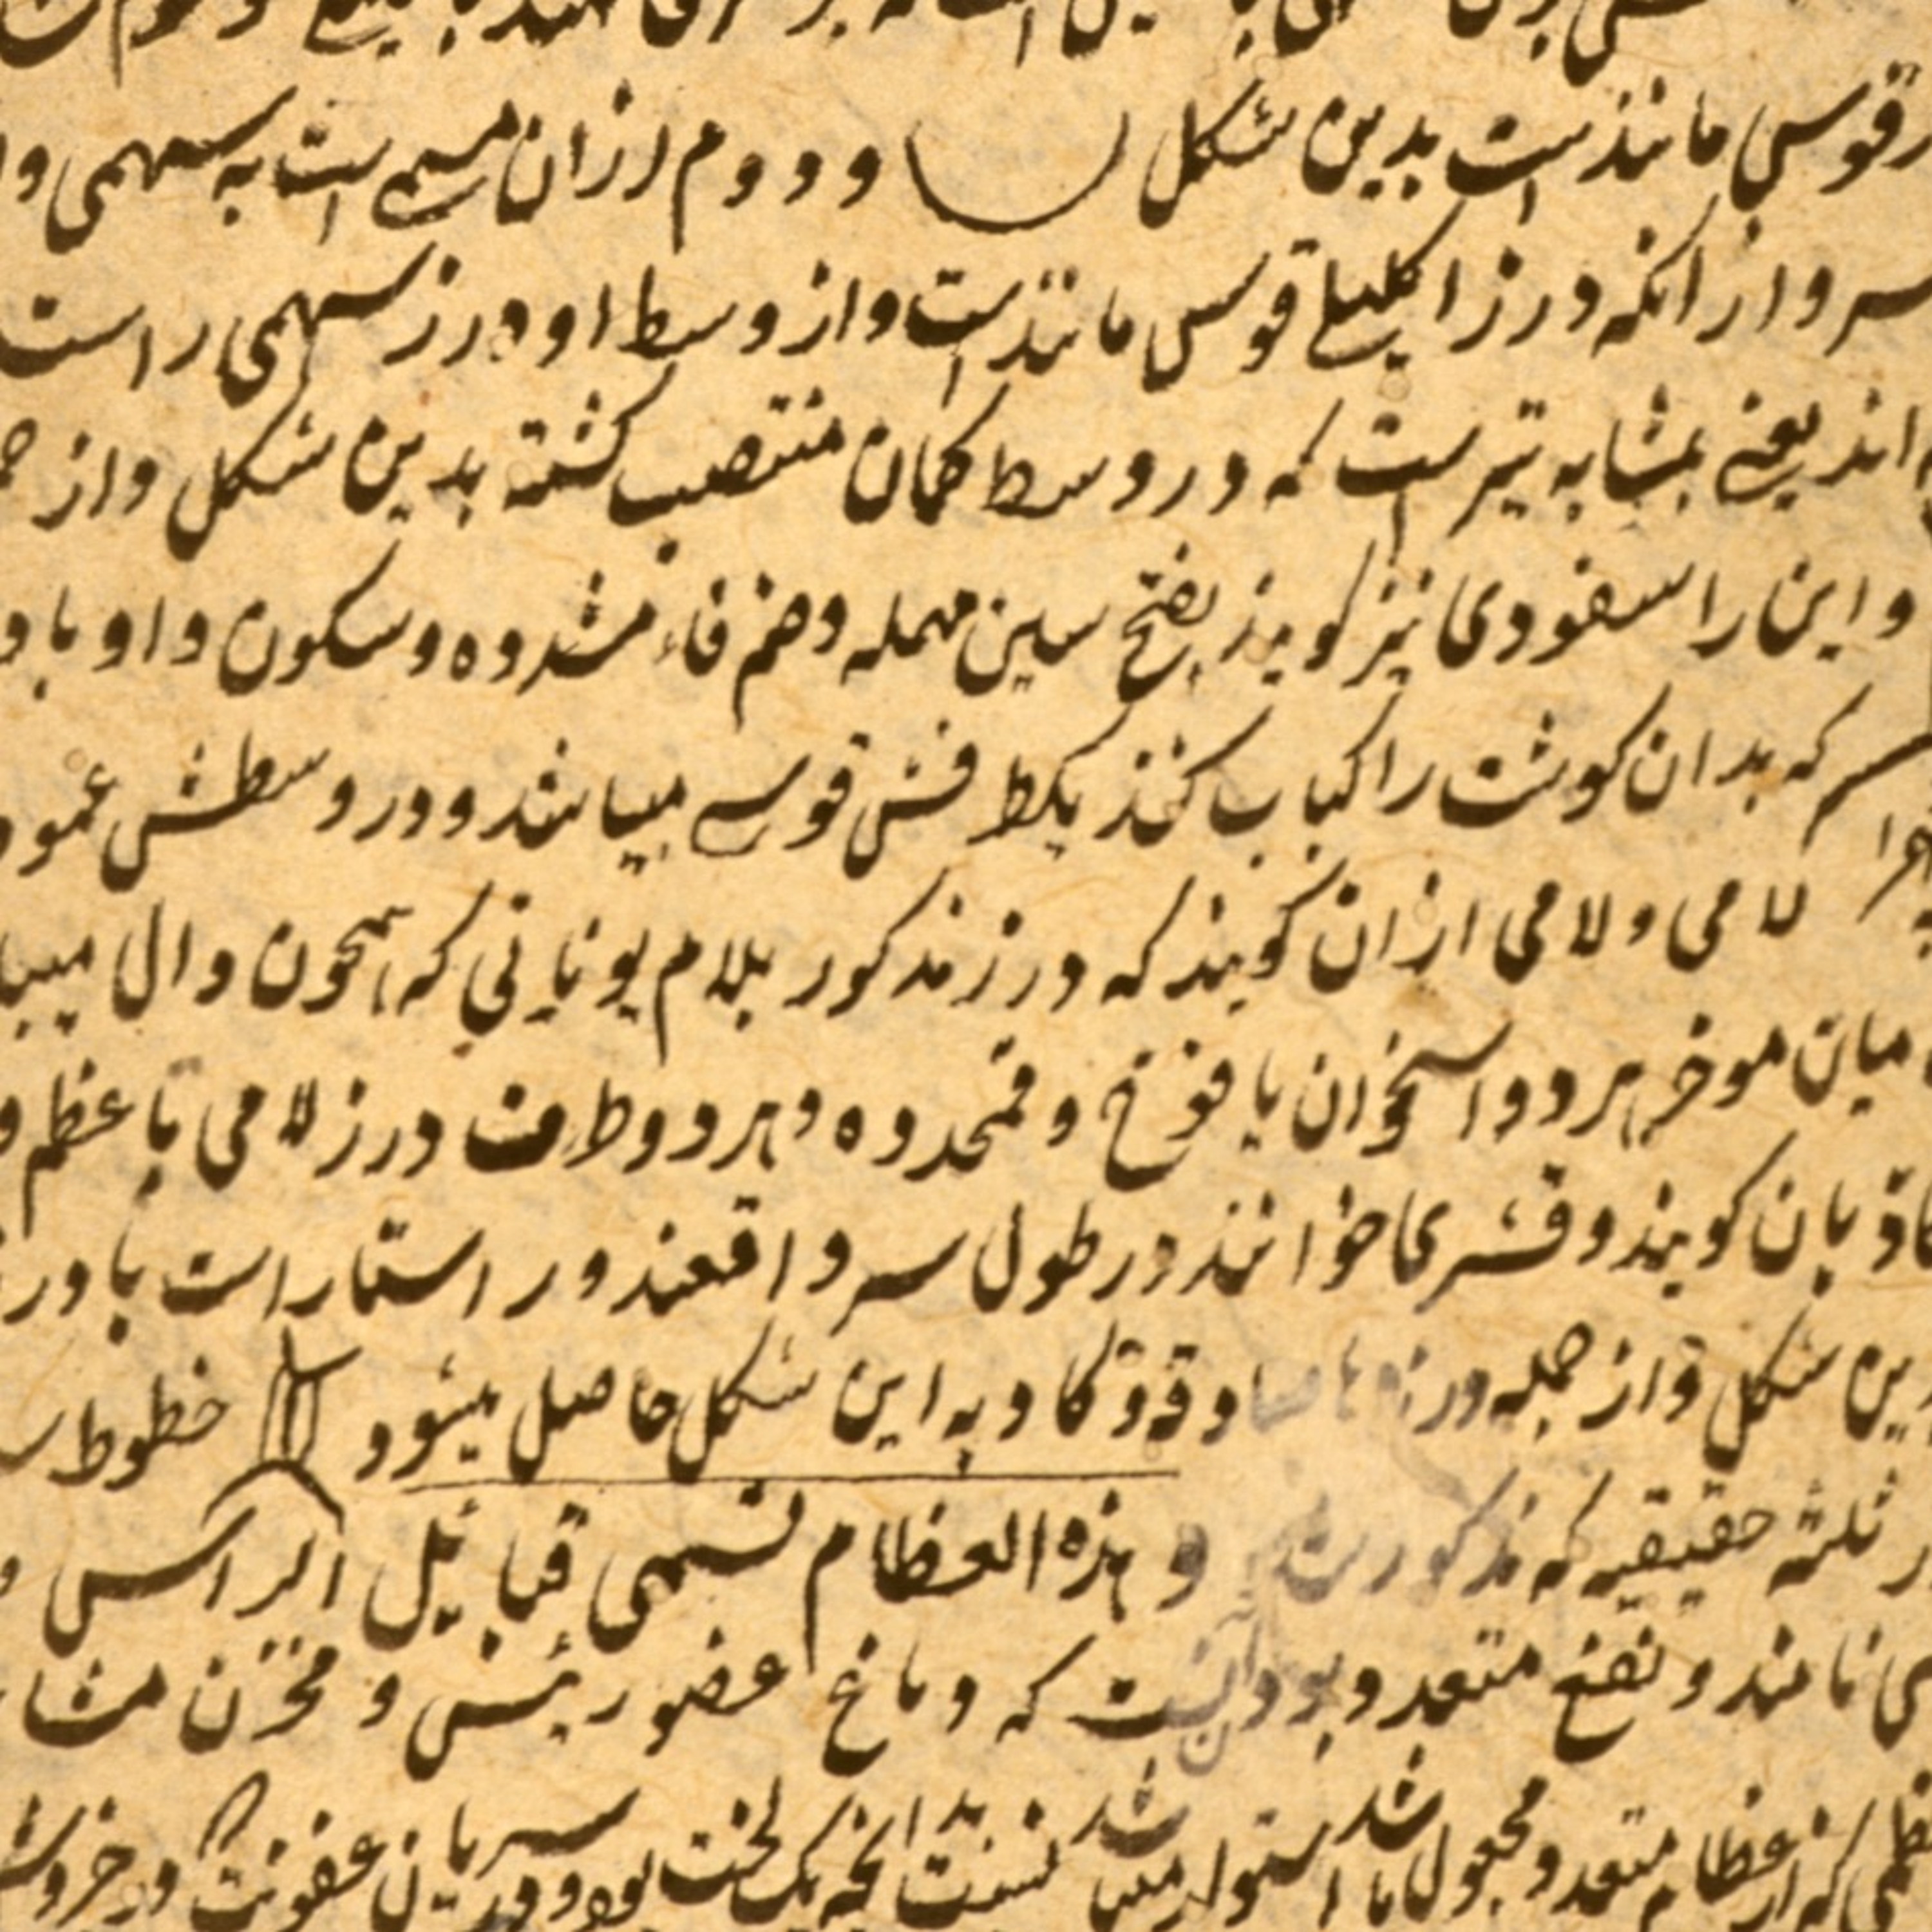 قوسی مانندست بدین شکل و دوم ازان مسمی است به سهمی و
سر و ازانکه درز اکلیلے قوسی مانندست و از وسط او درز سهمی راست
اند یعنے بمشابه تیرست که در وسط کمان منتصب کشته بدین شکل و از
و این را سفودی نیز کویند بفتح سین مهمله و ضم فاء مشدده و سکون واو با
که بدان کوشت را کباب کنند یکطرفش قوسے میباشد و در وسطش عمود
لامی و لامی ازان کویند که درز مذکور بلام یونانی که همچون دال
میان موخر هر دو استخوان یافوخ و قمحدوه و هر دو طرف درز لامی با عظم
کاذبان کویند و قشری خوانند در طول سر واقعند و راستا راست با
ین شکل و از جمله درزها صادقه و کاذبه این شکل حاصل میشود خطوط
ثلثه حقیقیه که مذکور شد و هذه العظام تسمی قبائل الراس
نامند و نفع متعدد بودن آنست که دماغ عضو رئیس و مخزن
که از عظام متعدد مجعول باشد استوار میباشد نسبت بدانچه یک لخت بود و در سریان عفونت